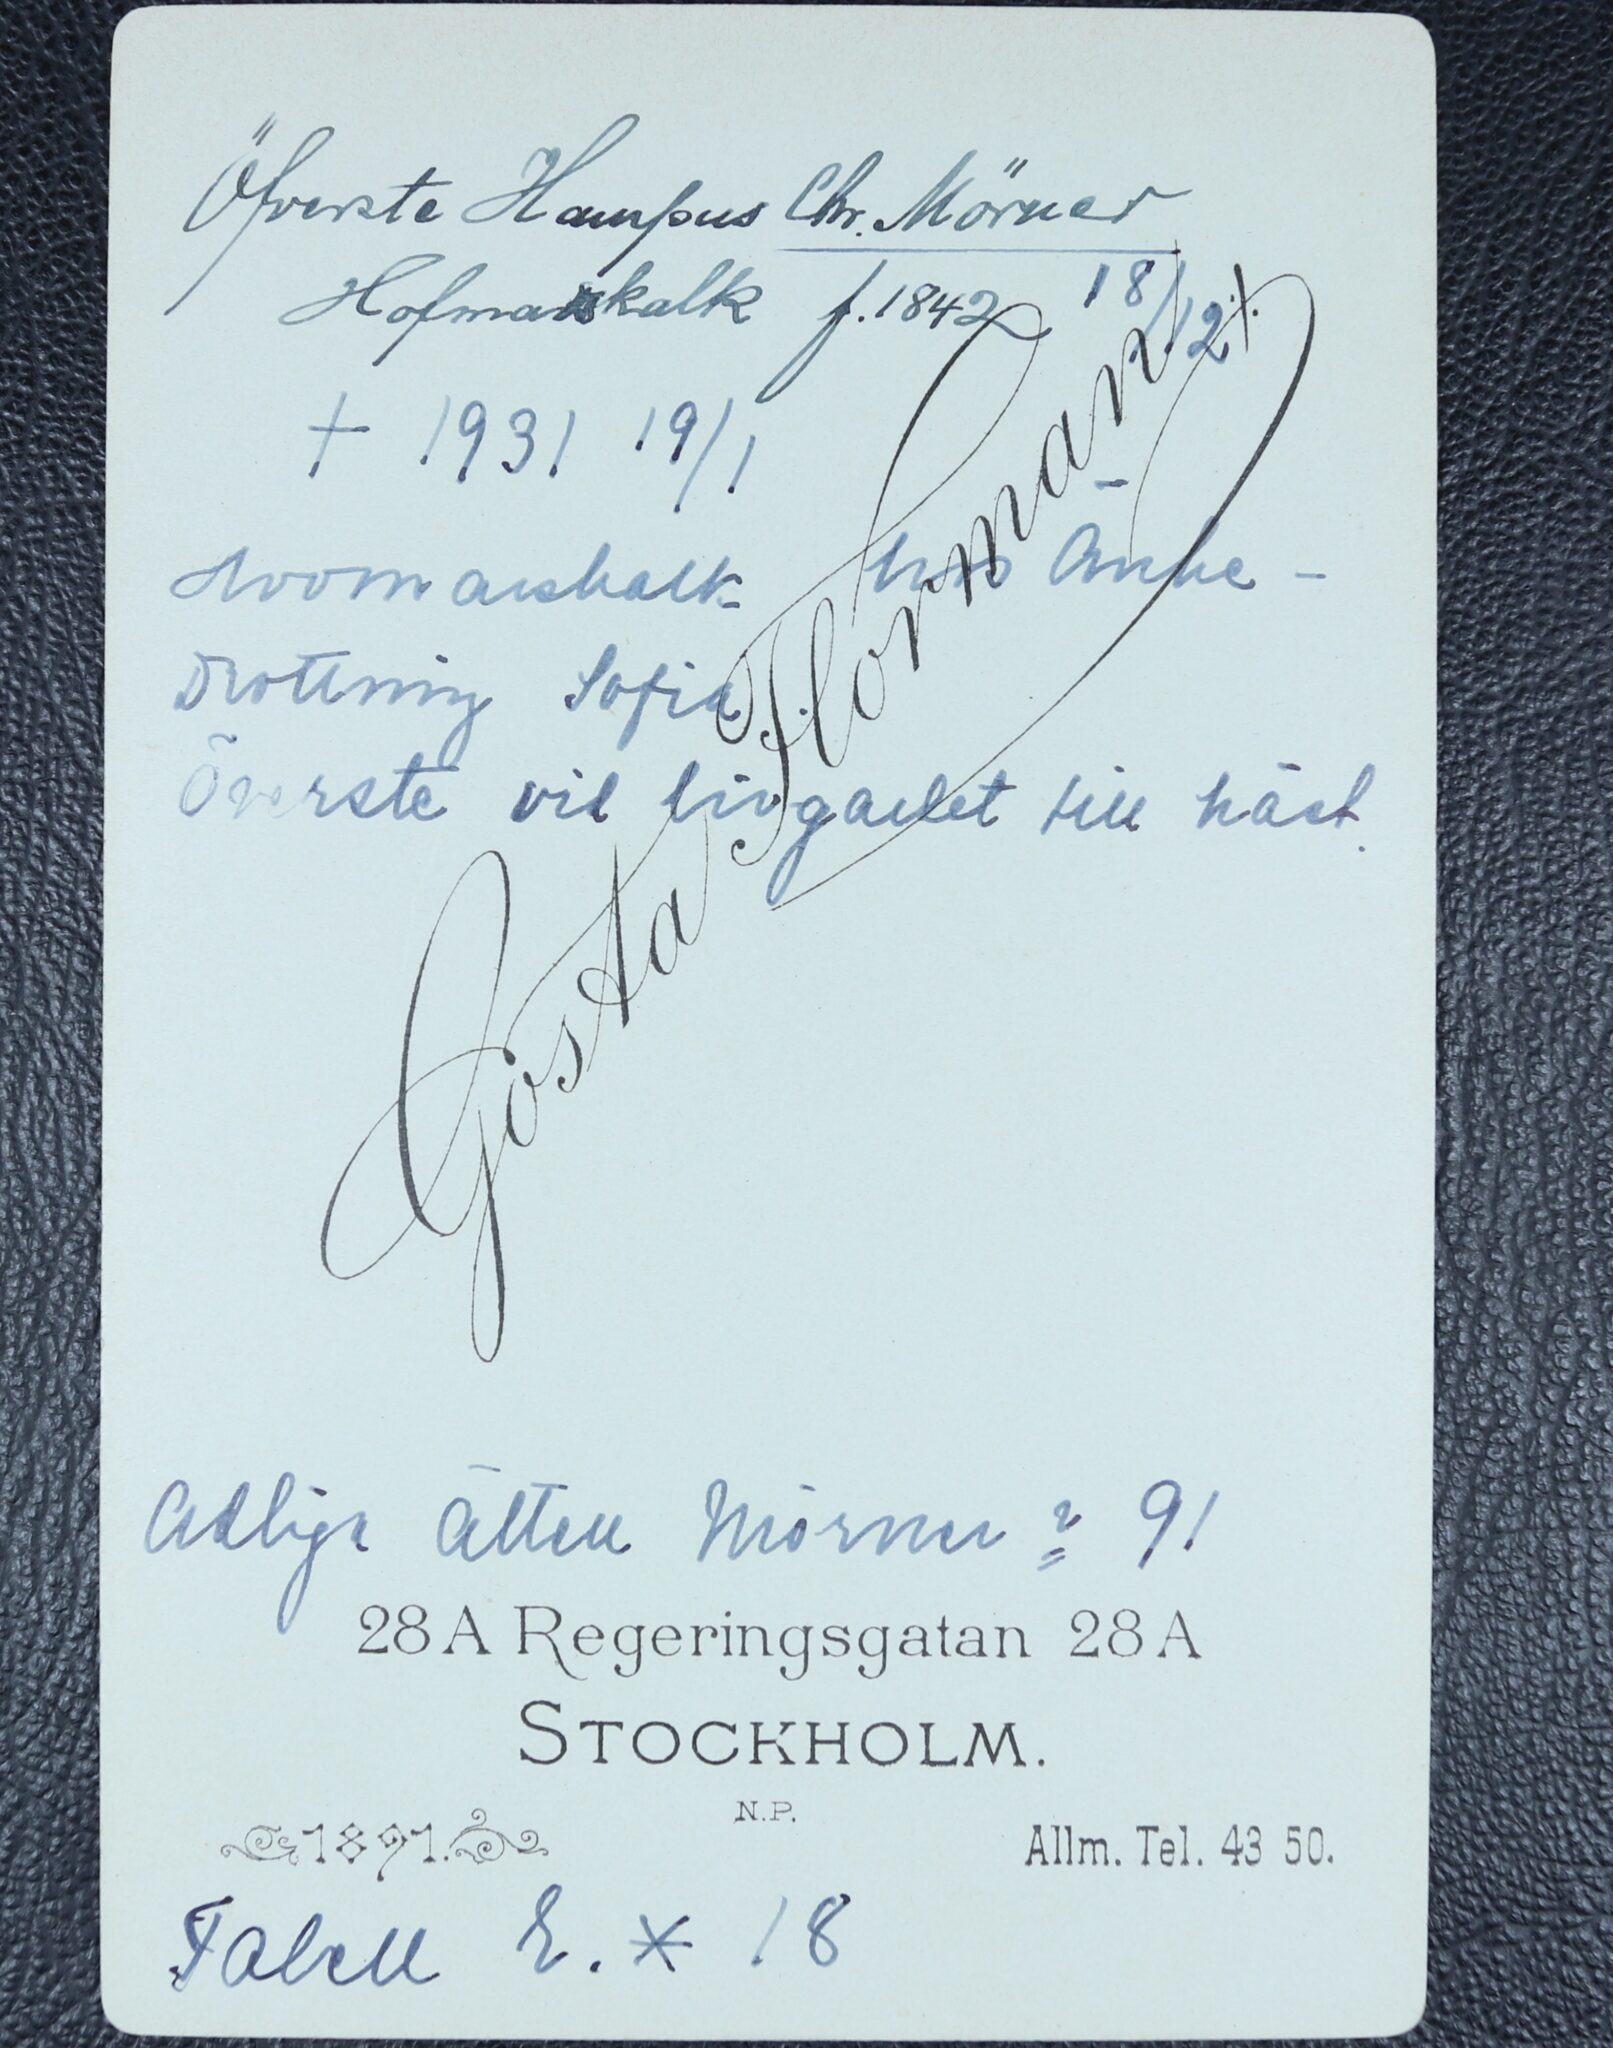 Öfverste Hampus Chr. Mörner
Hofmarskalk f. 1842 18/12
+ 1931 19/1
Hovmarskalk hos Änke-
Drottning Sofia
Överste vid livgardet till häst.
Gösta Florman
Adliga Ätten Mörner n 91
28 A Regeringsgatan 28 A
STOCKHOLM.
N.P.
1891.
Allm. Tel. 43 50.
Tabell E. * 18